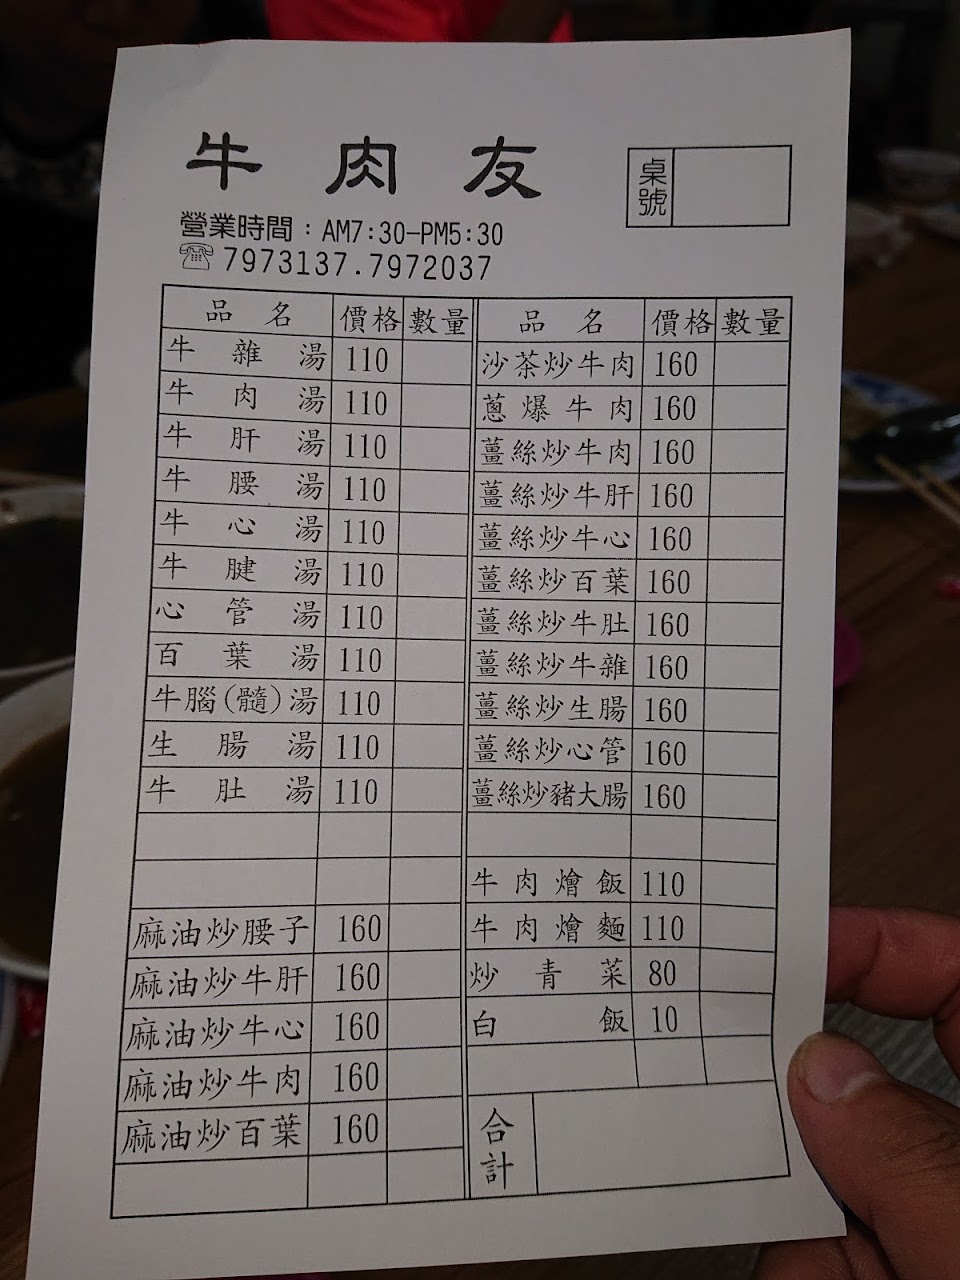 牛肉友
桌號
營業時間：AM7:30-PM5:30
☎7973137.7972037
品名 價格 數量
牛雜湯 110
牛肉湯 110
牛肝湯 110
牛腰湯 110
牛心湯 110
牛腱湯 110
心管湯 110
百葉湯 110
牛腦(髓)湯 110
生腸湯 110
牛肚湯 110
麻油炒腰子 160
麻油炒牛肝 160
麻油炒牛心 160
麻油炒牛肉 160
麻油炒百葉 160
品名 價格 數量
沙茶炒牛肉 160
蔥爆牛肉 160
薑絲炒牛肉 160
薑絲炒牛肝 160
薑絲炒牛心 160
薑絲炒百葉 160
薑絲炒牛肚 160
薑絲炒牛雜 160
薑絲炒生腸 160
薑絲炒心管 160
薑絲炒豬大腸 160
牛肉燴飯 110
牛肉燴麵 110
炒青菜 80
白飯 10
合計